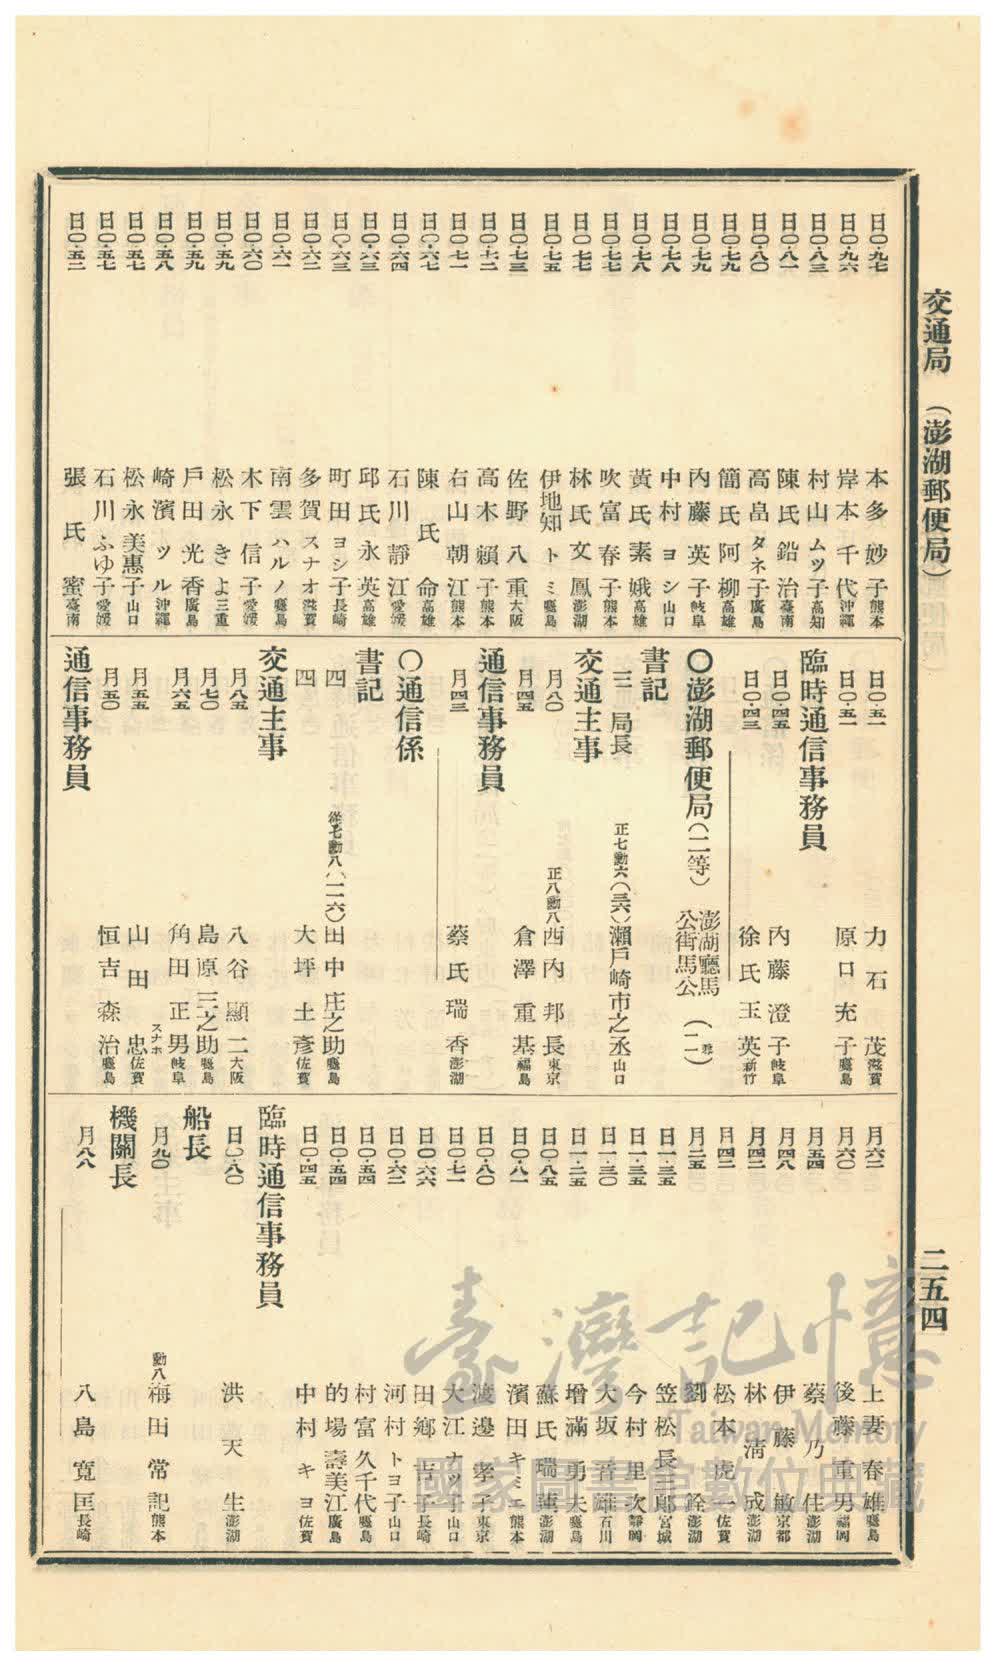 交通局 （澎湖郵便局）
二五四
日〇・九七 本多妙子 熊本
日〇・九六 岸本千代 沖繩
日〇・八三 村山ムツ子 高知
日〇・八一 陳氏鉛治 臺南
日〇・八〇 高畠タネ子 廣島
日〇・七九 簡氏阿柳 高雄
日〇・七九 內藤英子 岐阜
日〇・七八 中村ヨシ 山口
日〇・七八 黃氏素娥 高雄
日〇・七七 吹富春子 熊本
日〇・七七 林氏文鳳 澎湖
日〇・七五 伊地知トミ 鹿兒島
日〇・七三 佐野八重 大阪
日〇・七二 高木賴子 熊本
日〇・七一 右山朝江 熊本
日〇・六七 陳氏命 高雄
日〇・六四 石川靜江 愛媛
日〇・六三 邱氏永英 高雄
日〇・六三 町田ヨシ子 長崎
日〇・六二 多賀スナオ 滋賀
日〇・六一 南雲ハルノ 鹿兒島
日〇・六〇 木下信子 愛媛
日〇・五九 松永きよ 三重
日〇・五九 戶田光香 廣島
日〇・五八 崎濱ツル 沖繩
日〇・五七 松永美惠子 山口
日〇・五七 石川ふゆ子 愛媛
日〇・五二 張氏蜜 臺南
日〇・五一 力石茂 滋賀
日〇・五一 原口充子 鹿兒島
臨時通信事務員
日〇・四五 內藤澄子 岐阜
日〇・四三 徐氏玉英 新竹
〇澎湖郵便局（二等） 澎湖廳馬公街馬公
書記
三 局長 正七勳六（三六） 瀨戶崎市之丞 山口
交通主事
月八〇 正八勳八 西內邦長 東京
月四五 倉澤重基 福島
通信事務員
月四三 蔡氏瑞香 澎湖
〇通信係
書記
四 從七勳八（二六） 田中庄之助 鹿兒島
四 大坪土彥 佐賀
交通主事
月八五 八谷顯二 大阪
月七〇 島原三之助 鹿兒島
月六五 角田正男 岐阜
月五五 山田忠 スナホ 佐賀
月五〇 恒吉森治 鹿兒島
通信事務員
月六二 上妻春雄 鹿兒島
月六〇 後藤重男 福岡
月五四 蔡乃佳 澎湖
月四八 伊藤敏 京都
月四二 林清成 澎湖
月四二 松本虎一 佐賀
月二五 劉銓 澎湖
日一・三五 笠松長三郎 宮城
日一・三五 今村里次 靜岡
日一・三〇 大坂香雄 石川
日一・二五 增滿勇夫 鹿兒島
日〇・八五 蘇氏瑞蓮 澎湖
日〇・八一 濱田キミエ 熊本
日〇・八〇 渡邊孝子 東京
日〇・七一 大江ナツ子 山口
日〇・六六 田鄉吉子 長崎
日〇・六二 河村トヨ子 山口
日〇・五四 村富久千代 鹿兒島
日〇・五四 的場壽美江 廣島
日〇・四五 中村キヨ 佐賀
臨時通信事務員
日〇・八〇 洪天生 澎湖
船長
月九〇 勳八 梅田常記 熊本
機關長
月八八 八島寬匡 長崎
臺灣記憶
Taiwan Memory
國家圖書館數位典藏